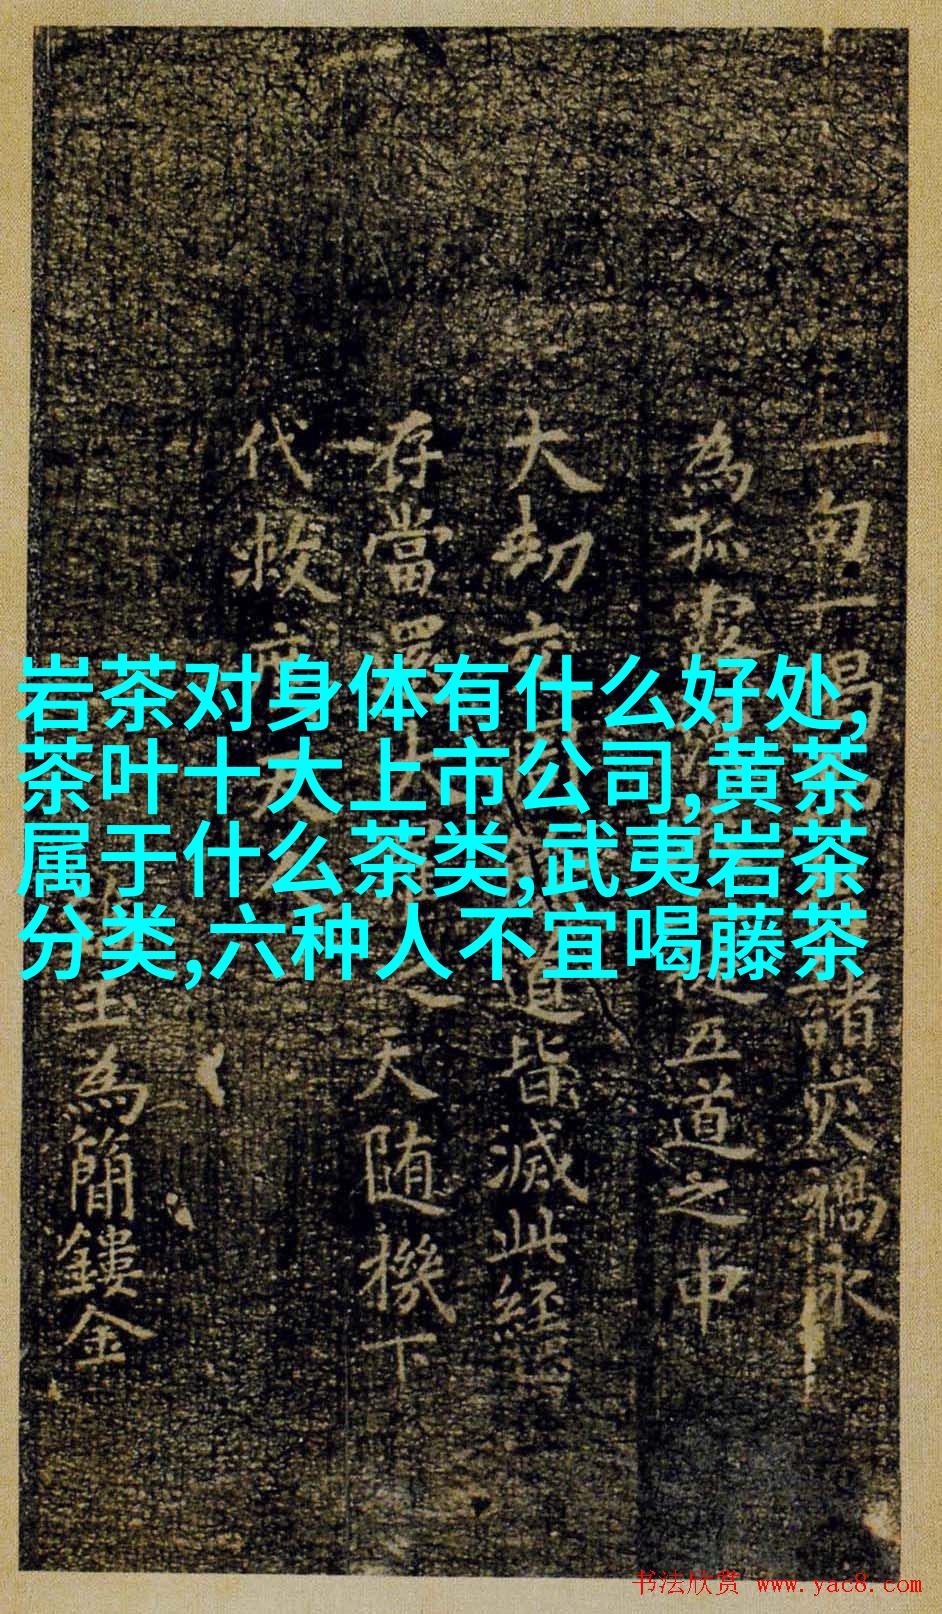 岩茶对身体有什么好处,
茶叶十大上市公司,黄茶
属于什么茶类,武夷岩茶
分类,六种人不宜喝藤茶
一句一偈
諸災禍永
為孤露
五道之中
大劫
道皆滅此經
存當還
天随機下
代救
為簡鏤金
书法欣赏 www.yac8.com